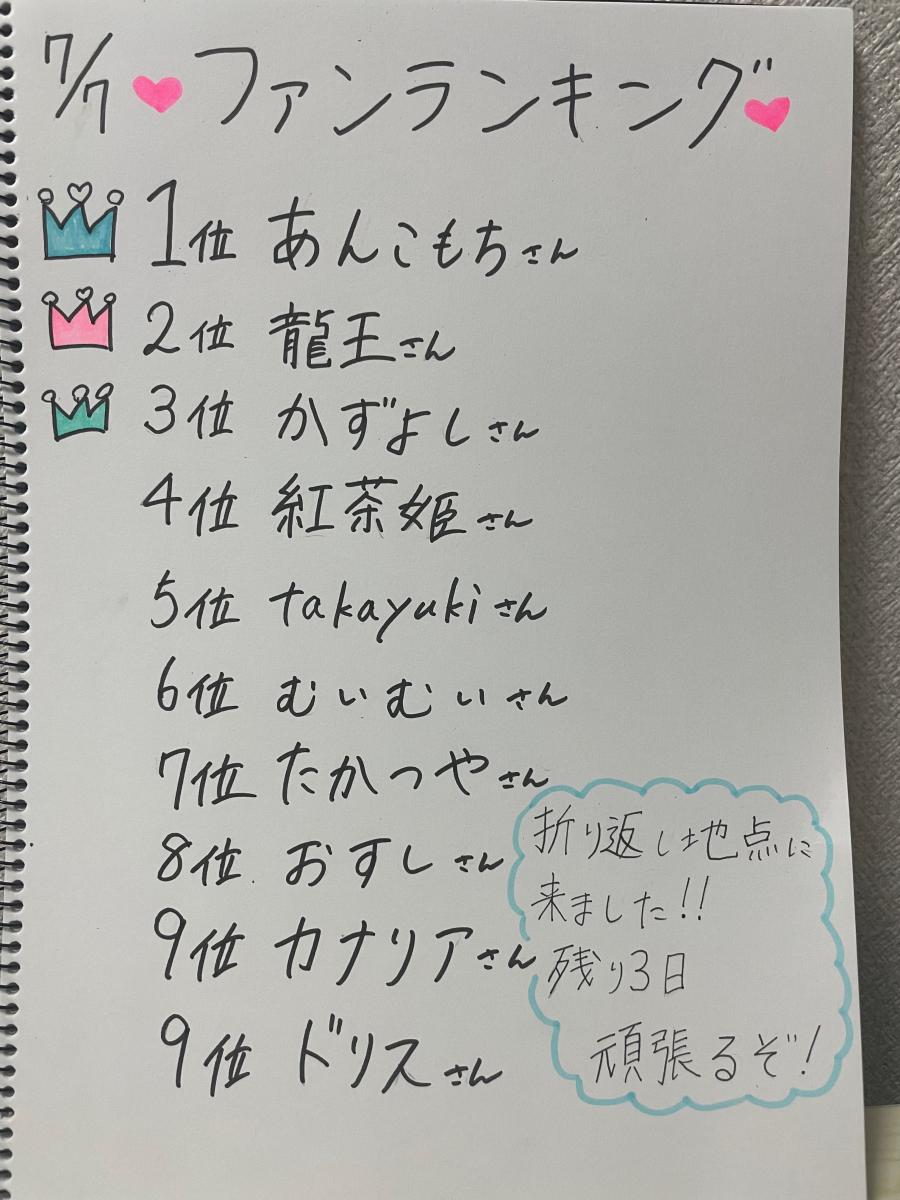 7/7 ファンランキング
1位 あんこもちさん
2位 龍王さん
3位 かずよしさん
4位 紅茶姫さん
5位 takayukiさん
6位 むぃむぃさん
7位 たかつやさん
8位 おすしさん
9位 カナリアさん
9位 ドリスさん
折り返し地点に
来ました!!
残り3日
頑張るぞ!